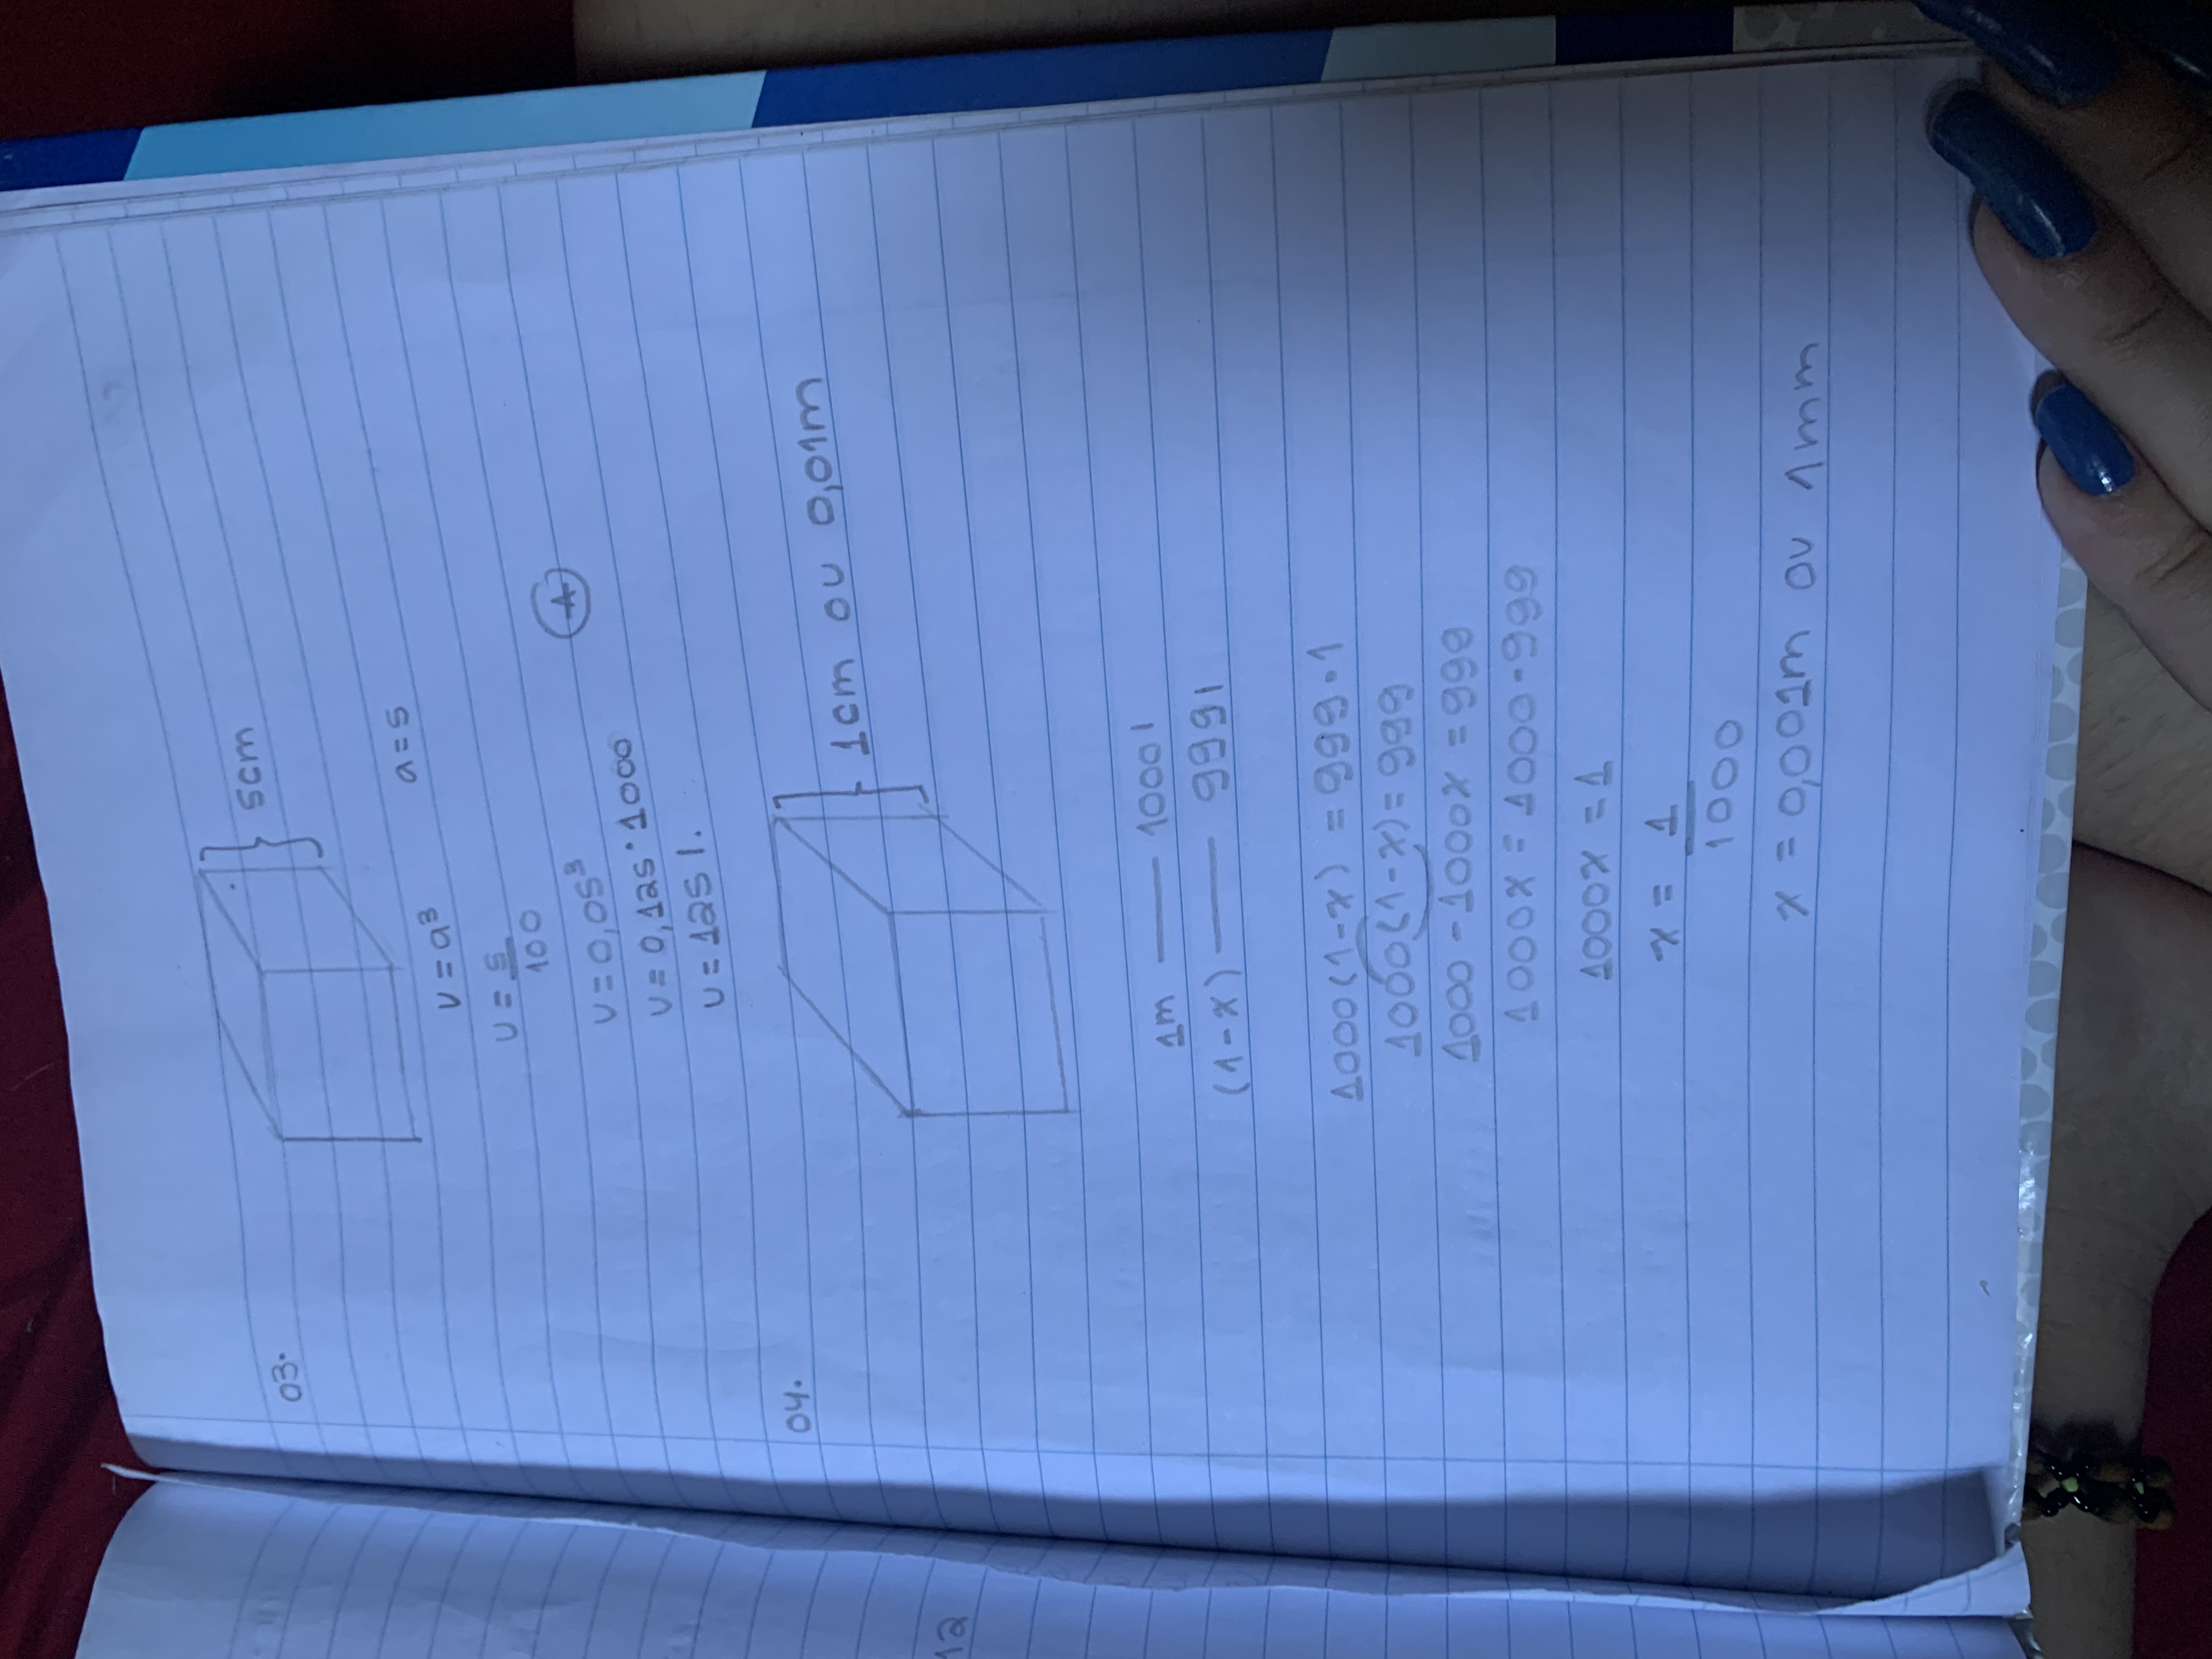 03.
5cm
a=5
v=a³
v=5/100
v=0,05³
A
v=0,125·1000
v=125l.
04.
1cm ou 0,01m
12
1m — 1000l
(1-x) — 999l
1000(1-x) = 999·1
1000(1-x)=999
1000-1000x=999
1000x=1000-999
1000x=1
x=1/1000
x=0,001m ou 1mm